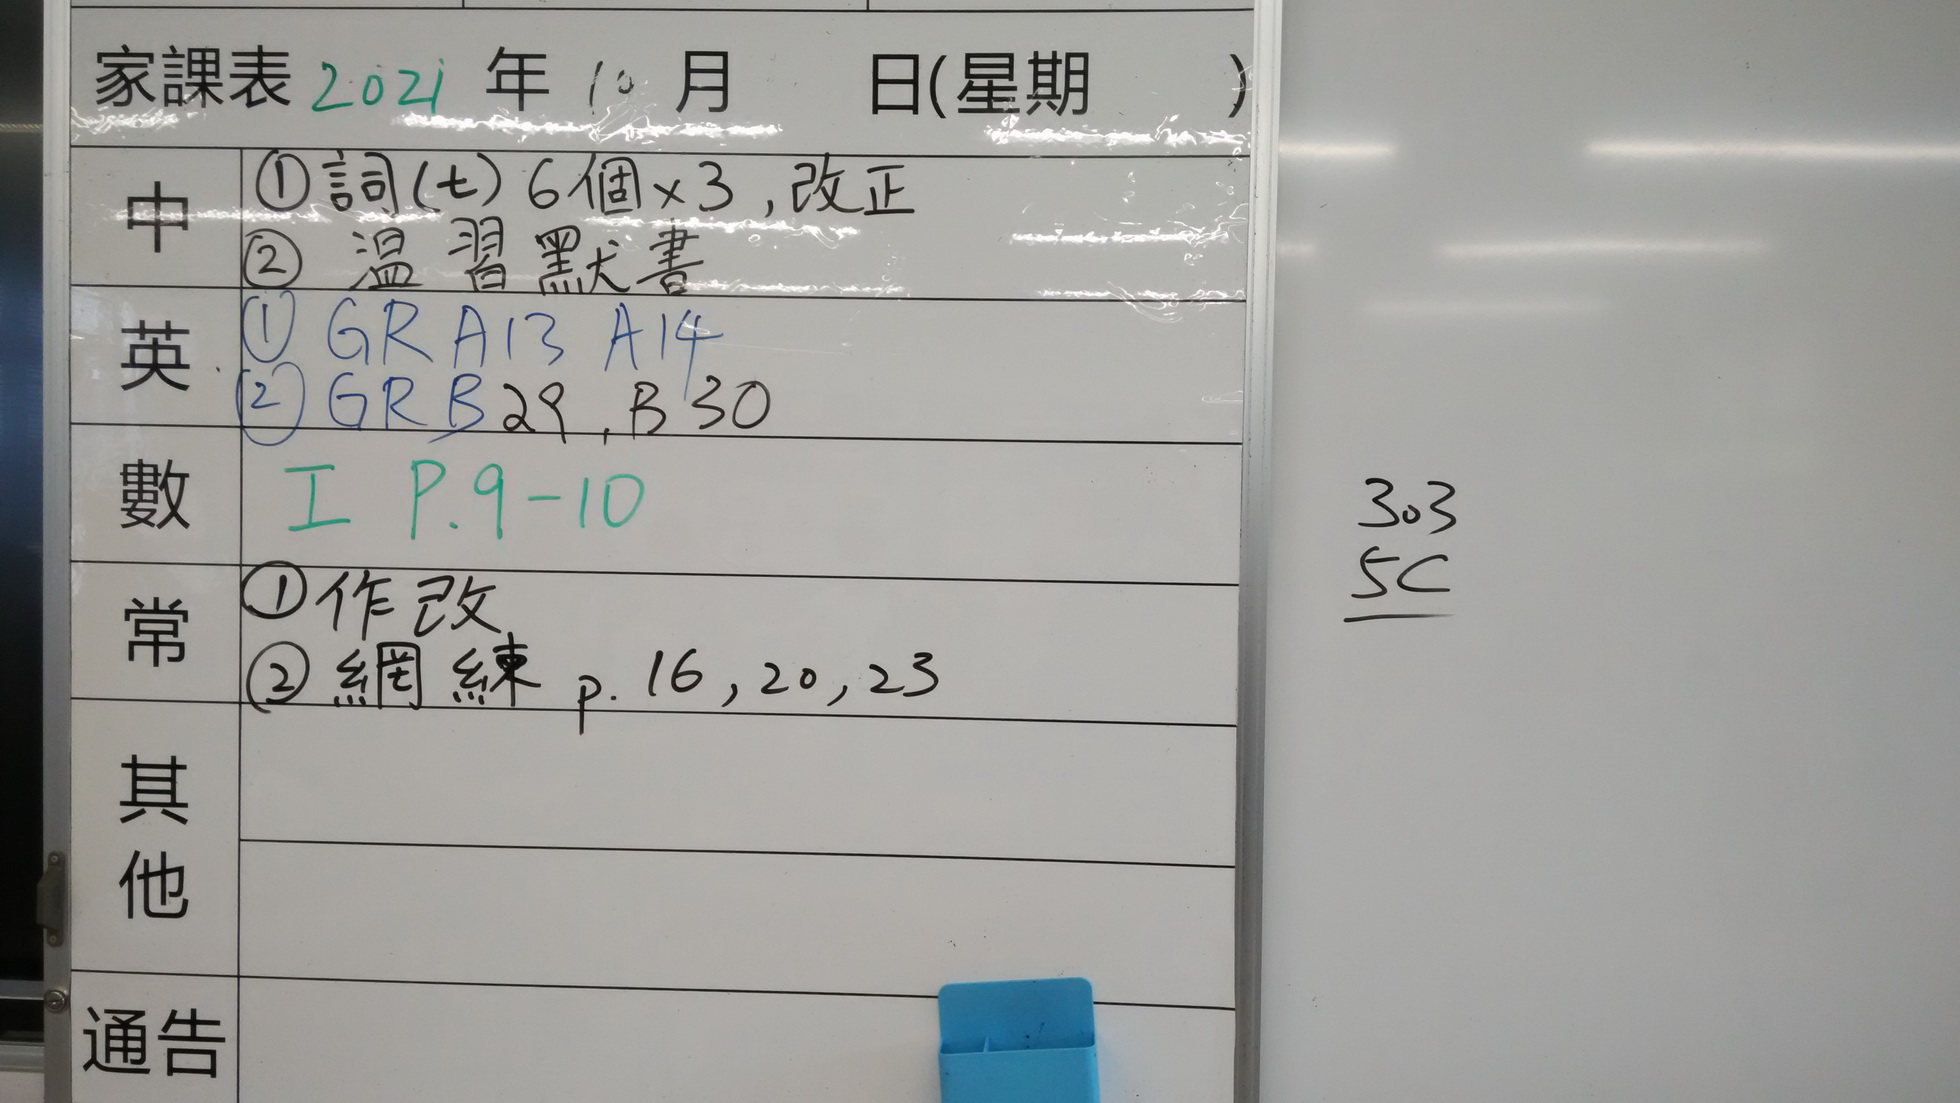 家課表 2021 年 10 月 日(星期 )
中
①詞(七) 6個×3,改正
② 溫習默書
英
① GR A13 A14
② GR B29, B30
數
工 P.9-10
常
①作改
②網練 p.16,20,23
其他
通告
303
5C